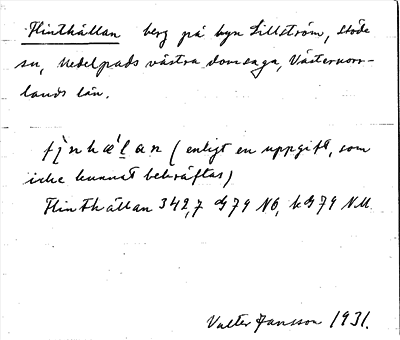 Flinthällan berg på byn Lillström, Stöde
sn, Medelpads västra domsaga, Västernorr-
lands län.
(enligt en uppgift, som
icke kunnat bekräftas)
Flinthällan 342,7 G79 NO, kG79 NV.
Valter Jansson 1931.